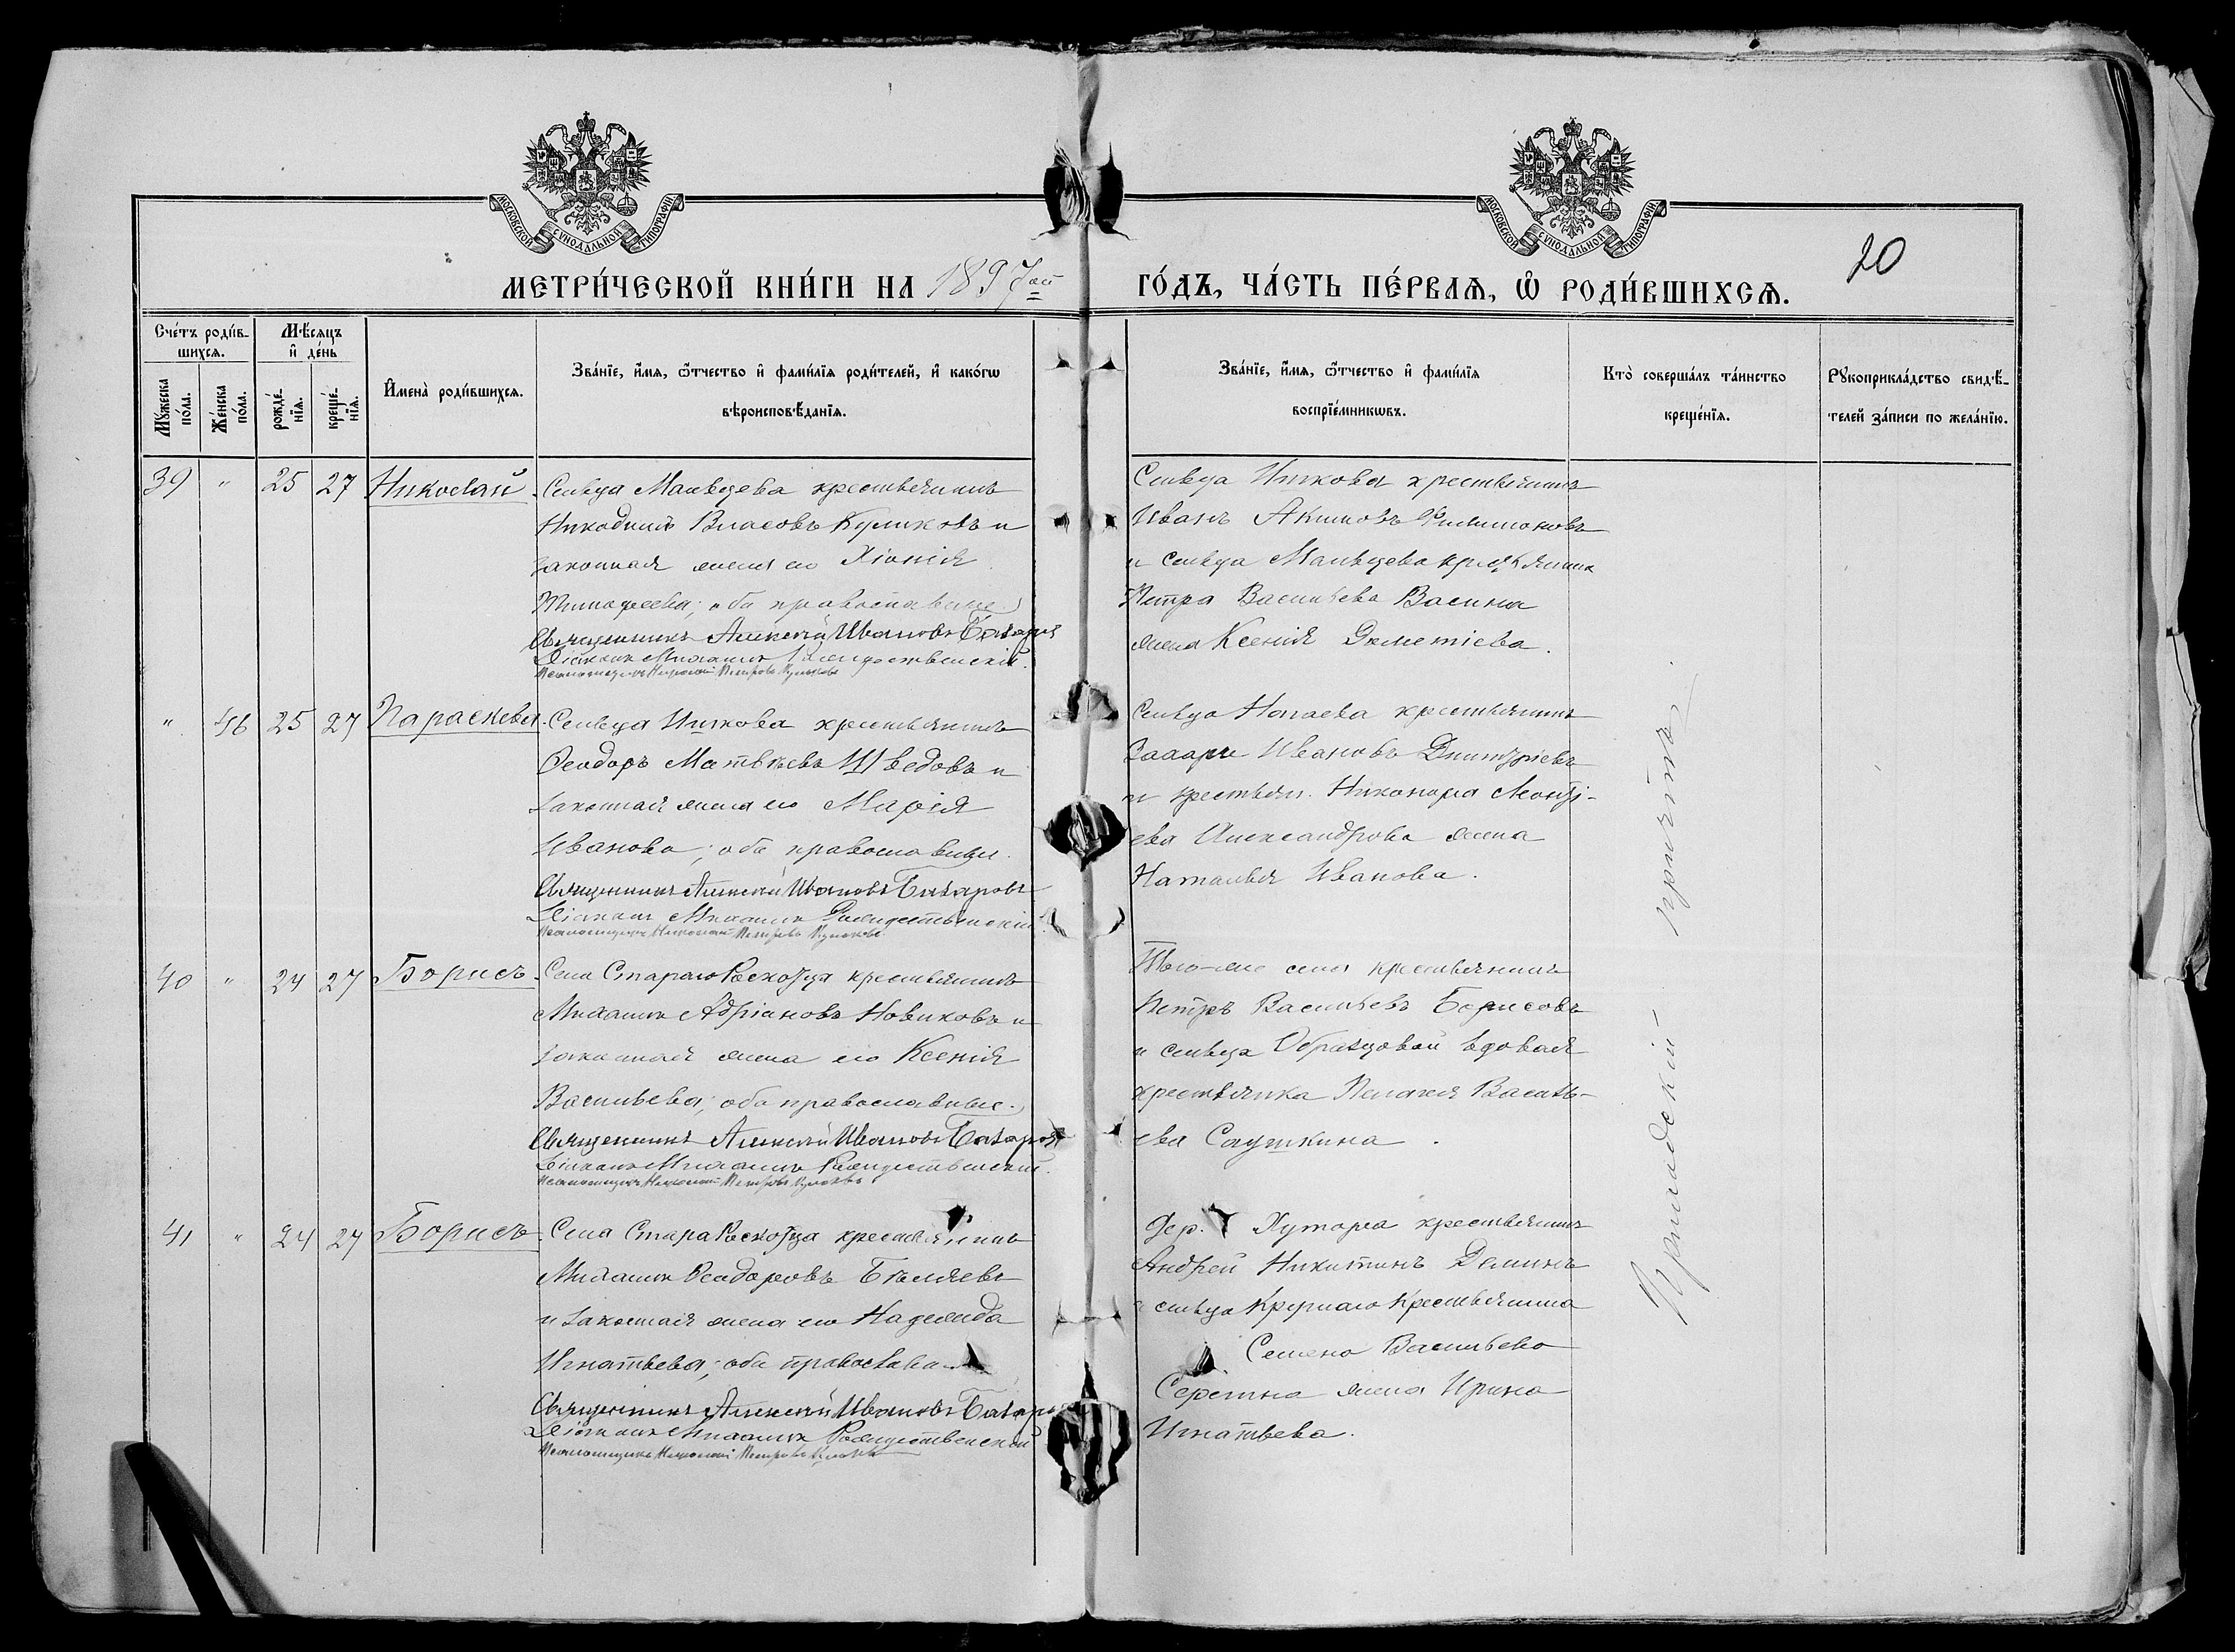 МОСКОВСКОЙ СѴНОДАЛЬНОЙ ТИПОГРАФІИ
МОСКОВСКОЙ СѴНОДАЛЬНОЙ ТИПОГРАФІИ
20
МЕТРИ́ЧЕСКОЙ КНИ́ГИ НА 1897ой ГО́ДЪ, ЧА́СТЬ ПЕ́РВАѦ, Ѽ РОДИ́ВШИХСѦ.
Сче́тъ роди́в-
шихсѧ.
Мꙋ́жеска по́ла.
Же́нска по́ла.
Мѣ́сѧцъ
и҆ де́нь
рожде́-
нїѧ.
креще́-
нїѧ.
И҆мена̀ роди́вшихсѧ.
Зва́нїе, и҆́мѧ, ѻ҆́тчество и҆ фами́лїѧ роди́телей, и҆ како́гѡ
вѣроисповѣ́данїѧ.
Зва́нїе, и҆́мѧ, ѻ҆́тчество и҆ фами́лїѧ
воспрїе́мникѡвъ.
Кто̀ соверша́лъ та́инство
креще́нїѧ.
Рꙋкоприкла́дство свидѣ́-
телей за́писи по жела́нїю.
39 " 25 27 Николай. Сельца Мальцева крестьянинъ
Никодимъ Власовъ Куликовъ и
законная жена его Хіонія
Тимофеева; оба православные.
Священникъ Алексей Ивановъ
Діаконъ Михаилъ Рождественскій.
Псаломщикъ Николай Петровъ
Сельца Ишкова крестьянинъ
Иванъ Акимовъ Филимоновъ
и сельца Мальцева крестьянина
Петра Васильева Васина
жена Ксенія Дометіева.
" 46 25 27 Параскева. Сельца Ишкова крестьянинъ
Ѳеодоръ Матвѣевъ Шведовъ и
законная жена его Марія
Иванова; оба православные.
Священникъ Алексей Ивановъ
Діаконъ Михаилъ Рождественскій.
Псаломщикъ Николай Петровъ
Сельца крестьянинъ
Захарій Ивановъ Дмитріевъ
и крестьян. Никонора Леонті-
ева Александрова жена
Наталья Иванова.
40 " 24 27 Борисъ. Села Стараго крестьянинъ
Михаилъ Адріановъ Новиковъ и
законная жена его Ксенія
Васильева; оба православные.
Священникъ Алексей Ивановъ
Діаконъ Михаилъ Рождественскій.
Псаломщикъ Николай Петровъ
Того-же села крестьянинъ
Петръ Васильевъ Борисовъ
и сельца Образцовой вдовая
крестьянка Пелагея Василь-
ева
41 " 24 27 Борисъ Села крестьянинъ
Михаилъ Ѳеодоровъ Бѣляевъ
и законная жена его Надежда
Игнатьева; оба православн.
Священникъ Алексей Ивановъ
Діаконъ Михаилъ Рождественскій
Псаломщикъ Николай Петровъ
Дер. Хутора крестьянинъ
Андрей Никитинъ Деминъ
и сельца Круглаго крестьянина
Семена Васильева
Серегина жена Ирина
Игнатьева.
Приходскій причтъ.